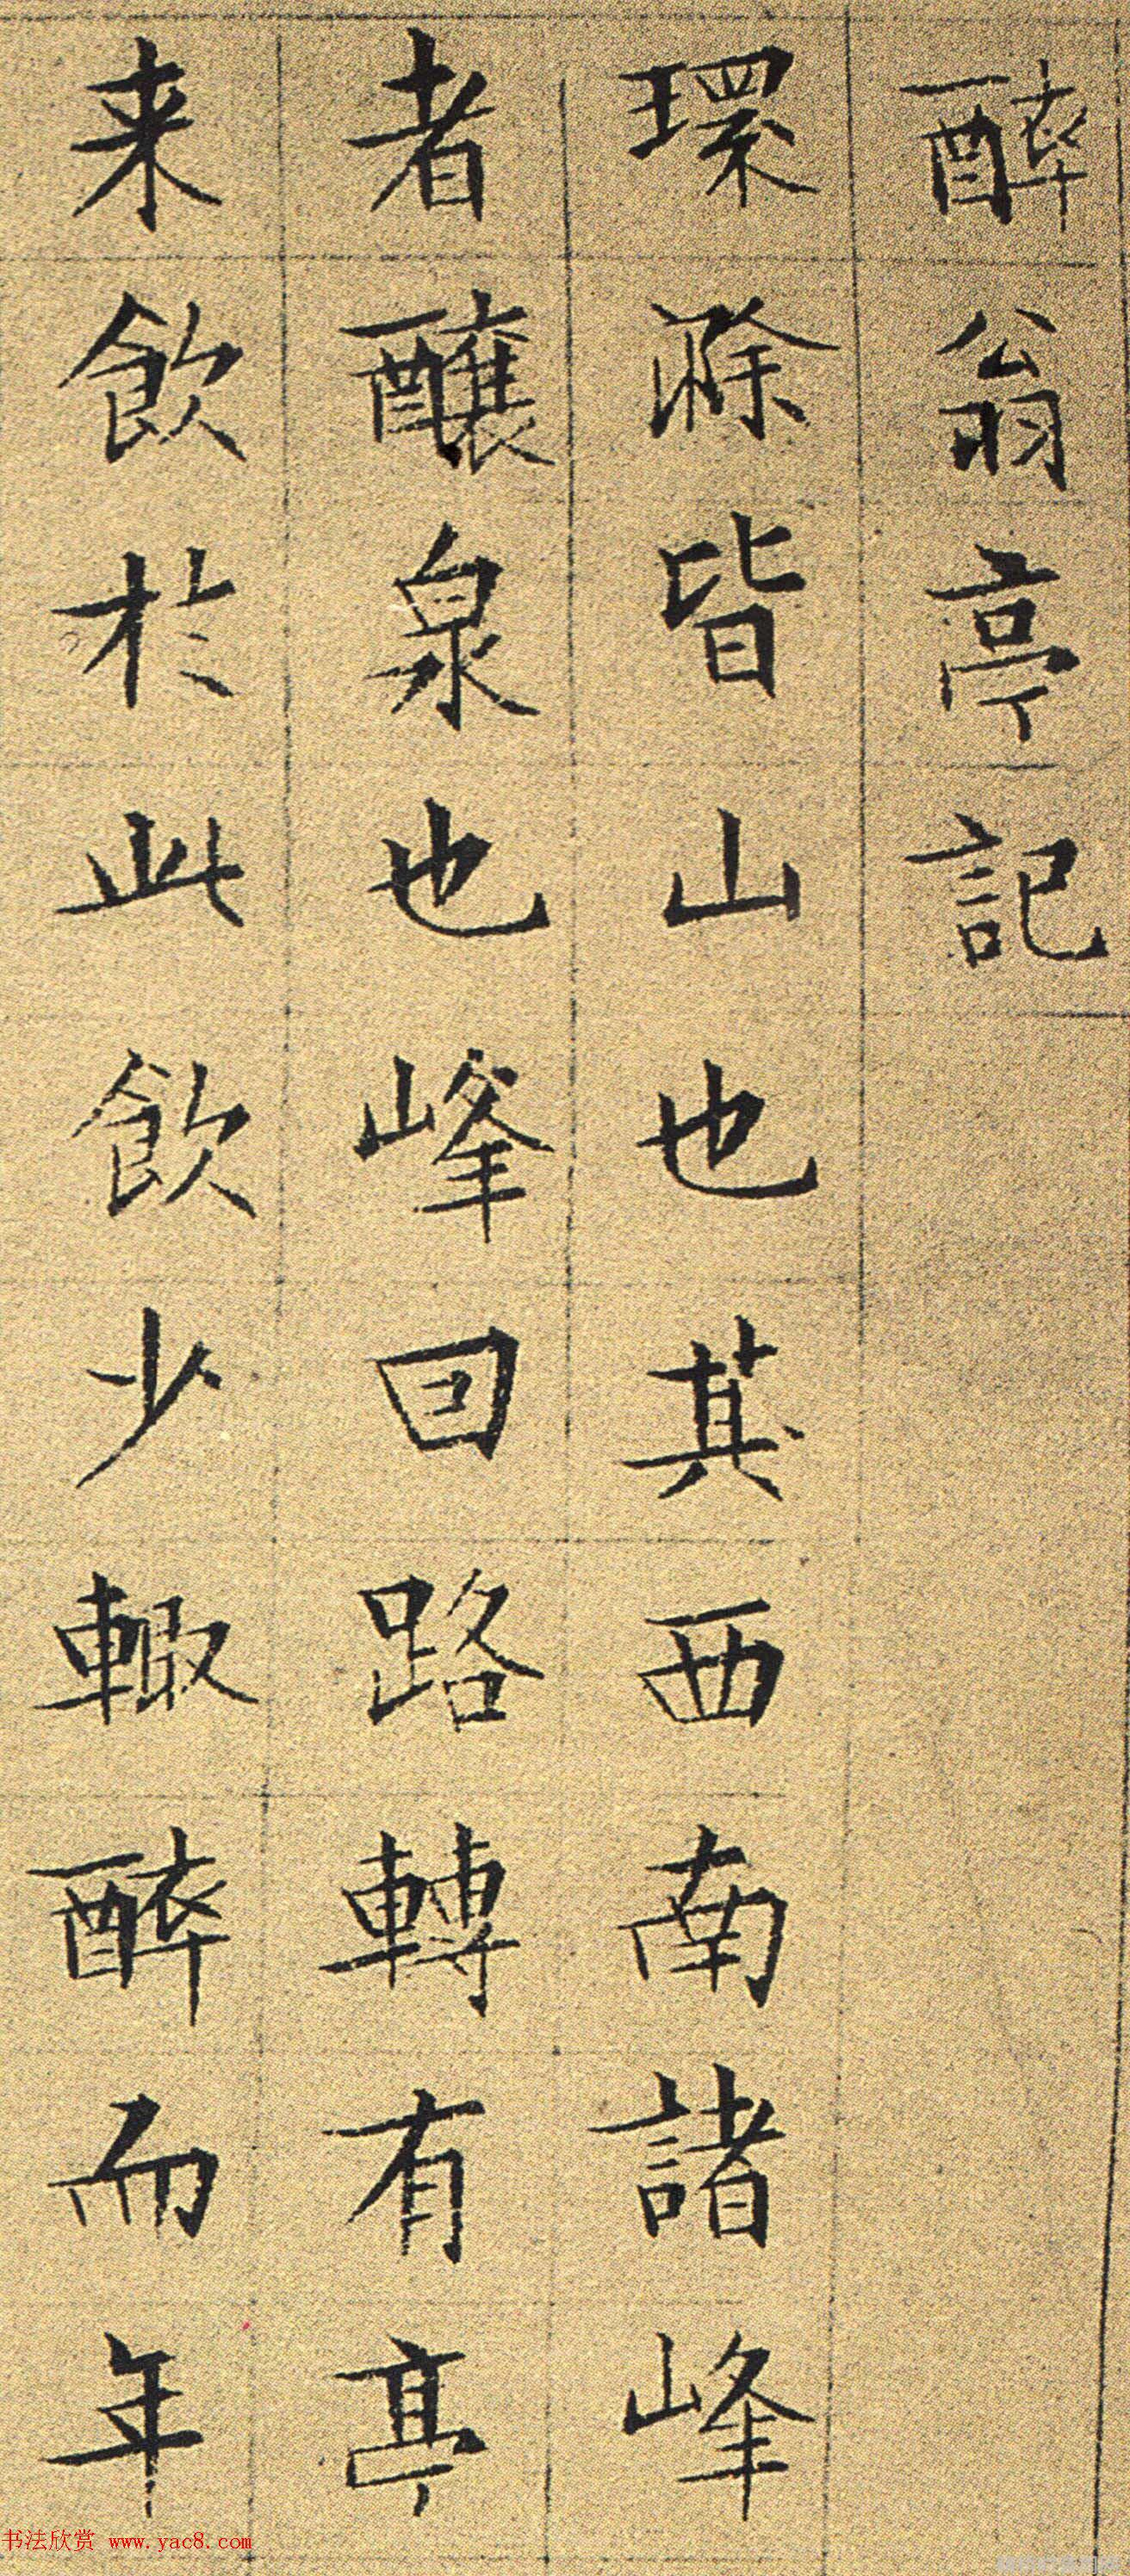 醉翁亭記
環滁皆山也其西南諸峰
者釀泉也峰回路轉有亭
来飲於此飲少輙醉而年
书法欣赏 www.yac8.com